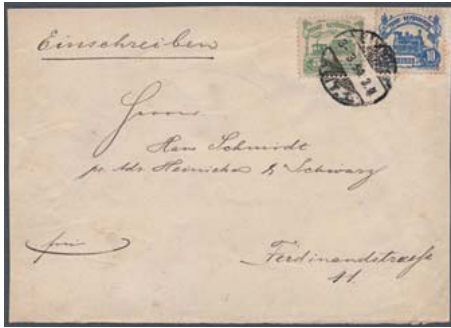 Einschreiben
Herrn
Hans Schmidt
pr. Adr. Heinicke & Schwarz
frei
Ferdinandstraße
11.
10